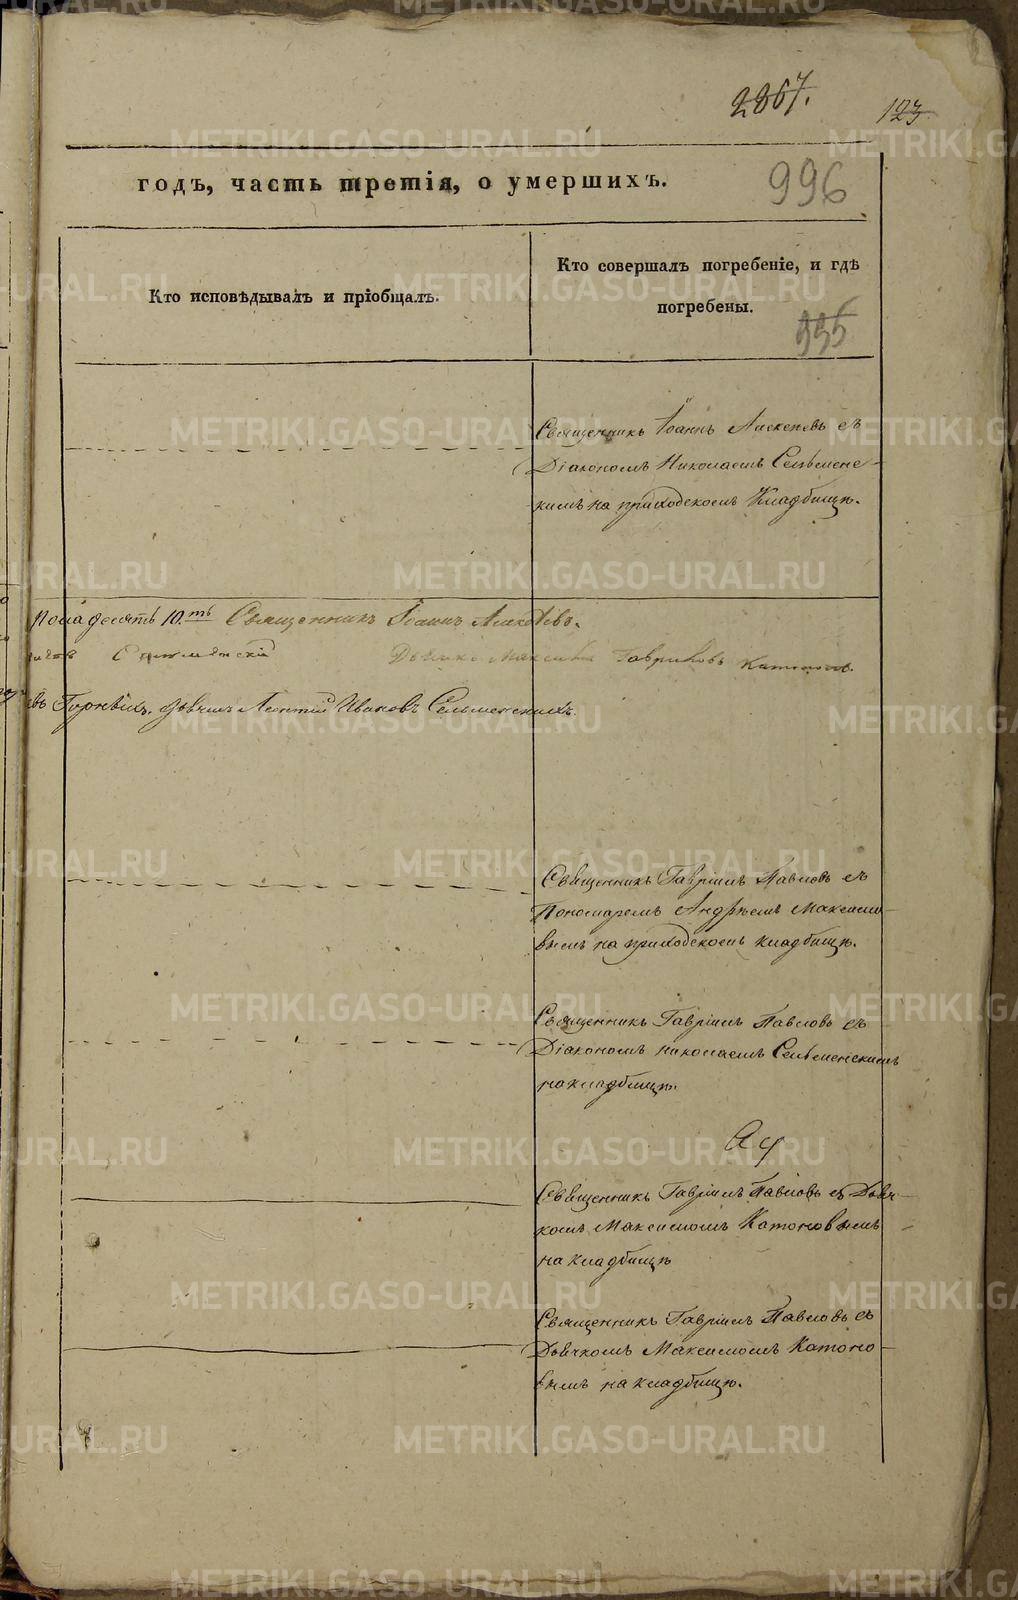 2867.
123.
годъ, часть третія, о умершихъ.
996
Кто исповѣдывалъ и пріобщалъ.
Кто совершалъ погребеніе, и гдѣ
погребены.
995
Священникъ Іоаннъ Алексѣевъ съ
Діакономъ Николаемъ Сельменс-
кимъ на приходскомъ Кладбищѣ.
Священникъ Іоаннъ Алексѣевъ.
Максимъ Гавриловъ
Леонтій Ивановъ Сельменскихъ.
Священникъ Гавріилъ Павловъ съ
Пономаремъ Андреемъ Максимо-
вымъ на приходскомъ кладбищѣ.
Священникъ Гавріилъ Павловъ съ
Діакономъ Николаемъ Сельменскимъ
на кладбищѣ.
Священникъ Гавріилъ Павловъ съ Дьяч-
комъ Максимомъ Катоновымъ
на кладбищѣ
Священникъ Гавріилъ Павловъ съ
Дьячкомъ Максимомъ Катоно-
вымъ на кладбищѣ.
METRIKI.GASO-URAL.RU